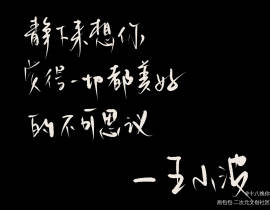 静下来想你，
觉得一切都美好
的不可思议
—王小波
画包包·二次元文创社区